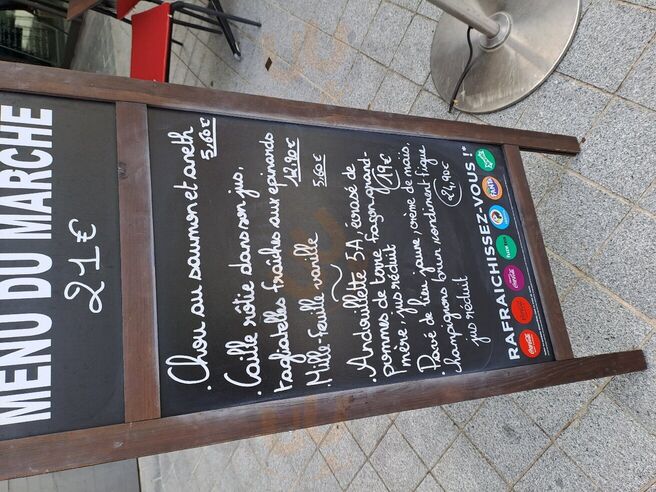 MENU DU MARCHE
21€
. Chou au saumon et aneth
5,60€
. Caille rôtie dans son jus,
tagliatelles fraîches aux épinards
12,90€
. Mille-feuille vanille 5,60€
~
. Andouillette 5A, écrasé de
pommes de terre façon grand-
mère, jus réduit 19€
. Pavé de lieu jaune, crème de maïs,
champignons brun, condiment figue
jus réduit 24,90€
RAFRAICHISSEZ-VOUS !*
Coca-Cola
Coca-Cola
FANTA